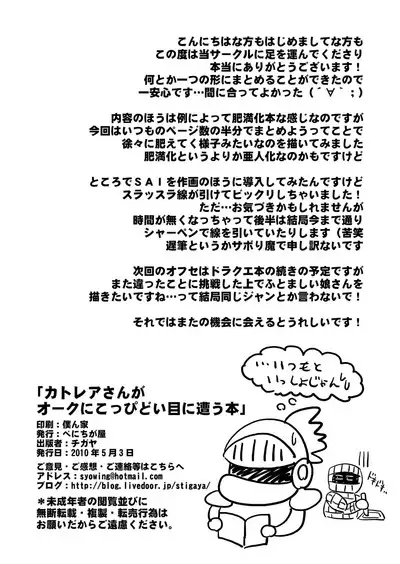 こんにちはな方もはじめましてな方も
この度は当サークルに足を運んでくださり
本当にありがとうございます！
何とか一つの形にまとめることができたので
一安心です…間に合ってよかった（´∀｀；）
内容のほうは例によって肥満化本な感じなのですが
今回はいつものページ数の半分でまとめようってことで
徐々に肥えてく様子みたいなのを描いてみました
肥満化というよりか亜人化なのかもですけど
ところでＳＡＩを作画のほうに導入してみたんですけど
スラッスラ線が引けてビックリしちゃいました！
ただ…お気づきかもしれませんが
時間が無くなっちゃって後半は結局今まで通り
シャーペンで線を引いていたりします（苦笑
遅筆というかサボり魔で申し訳ないです
次回のオフセはドラクエ本の続きの予定ですが
また違ったことに挑戦した上でふとましい娘さんを
描きたいですね…って結局同じジャンとか言わないで！
それではまたの機会に会えるとうれしいです！
…いつもと
いっしょじゃん…
「カトレアさんが
オークにこっぴどい目に遭う本」
印刷：僕ん家
発行：べにちが屋
出版者：チガヤ
発行日：2010年5月3日
ご意見・ご感想・ご連絡等はこちらへ
アドレス：syowing@hotmail.com
ブログ：http://blog.livedoor.jp/stigaya/
＊未成年者の閲覧並びに
無断転載・複製・転売行為は
お願いだからご遠慮ください。